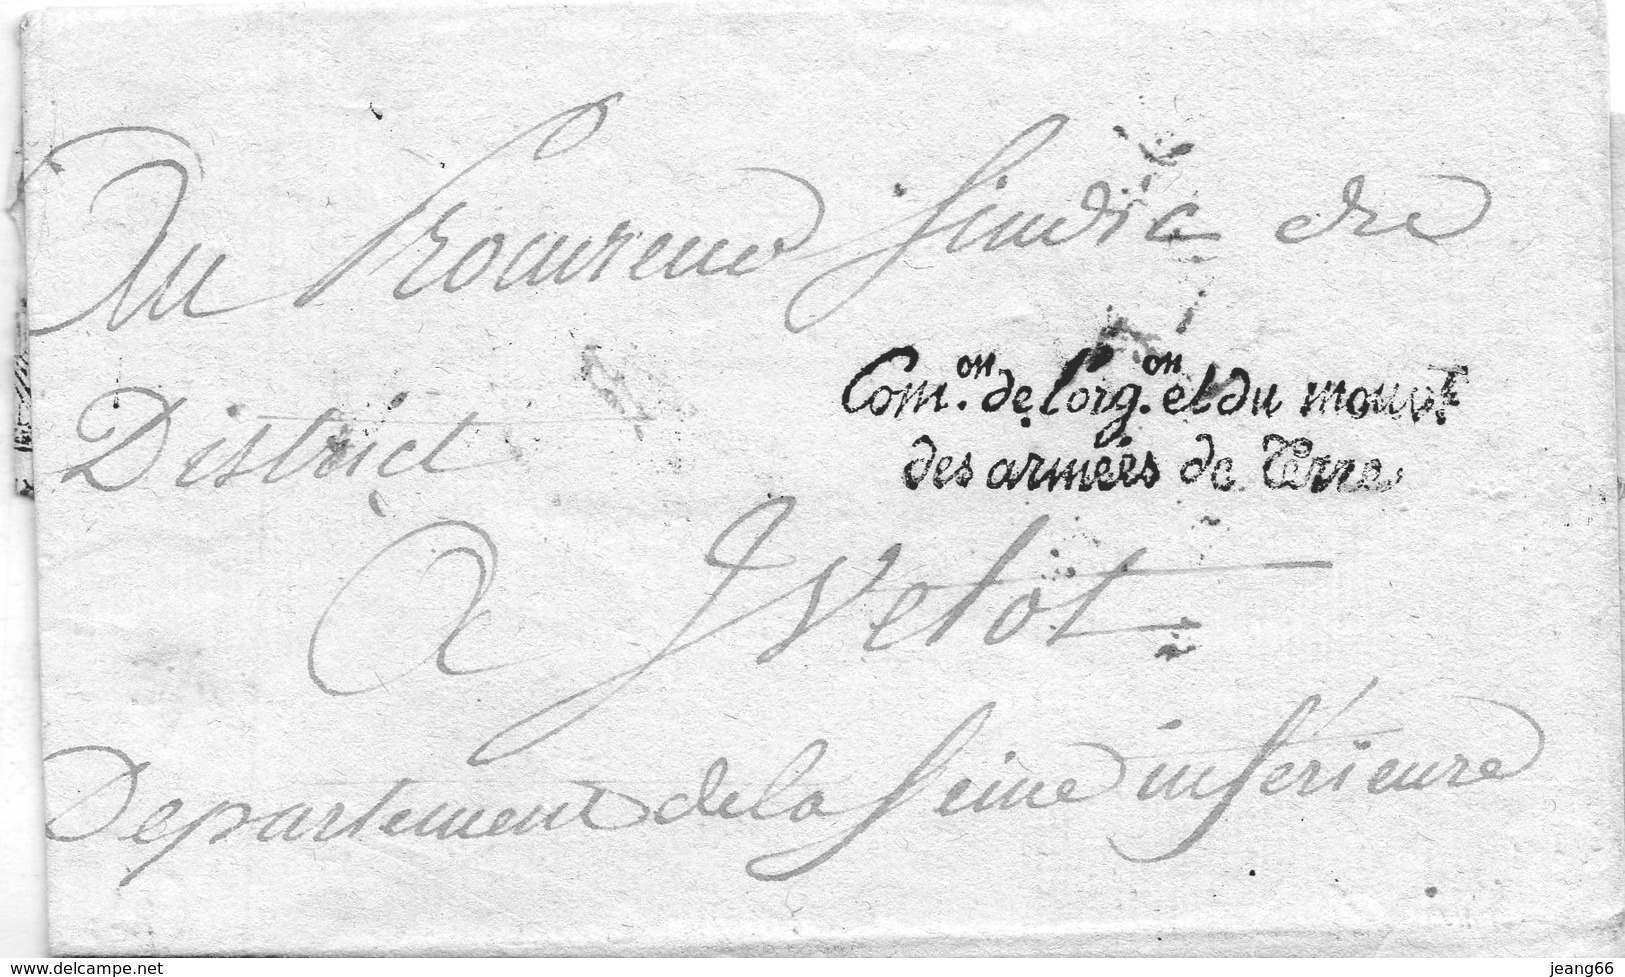 Au Procureur Sindic du
Com.on de l'org.on et du mouv.t
des armées de Terre
District
à Yvetot
Departement de la Seine inférieure
www.delcampe.net
jeang66